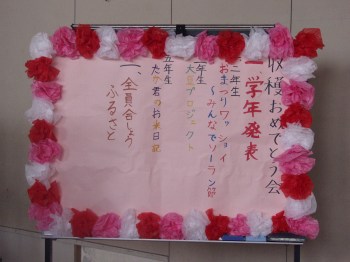 収穫おめでとう会
一、学年発表
一、二年生
おまつりワッショイ
～みんなでソーラン節
三年生
大豆プロジェクト
五年生
たか君のお米日記
一、全員合しょう
ふるさと